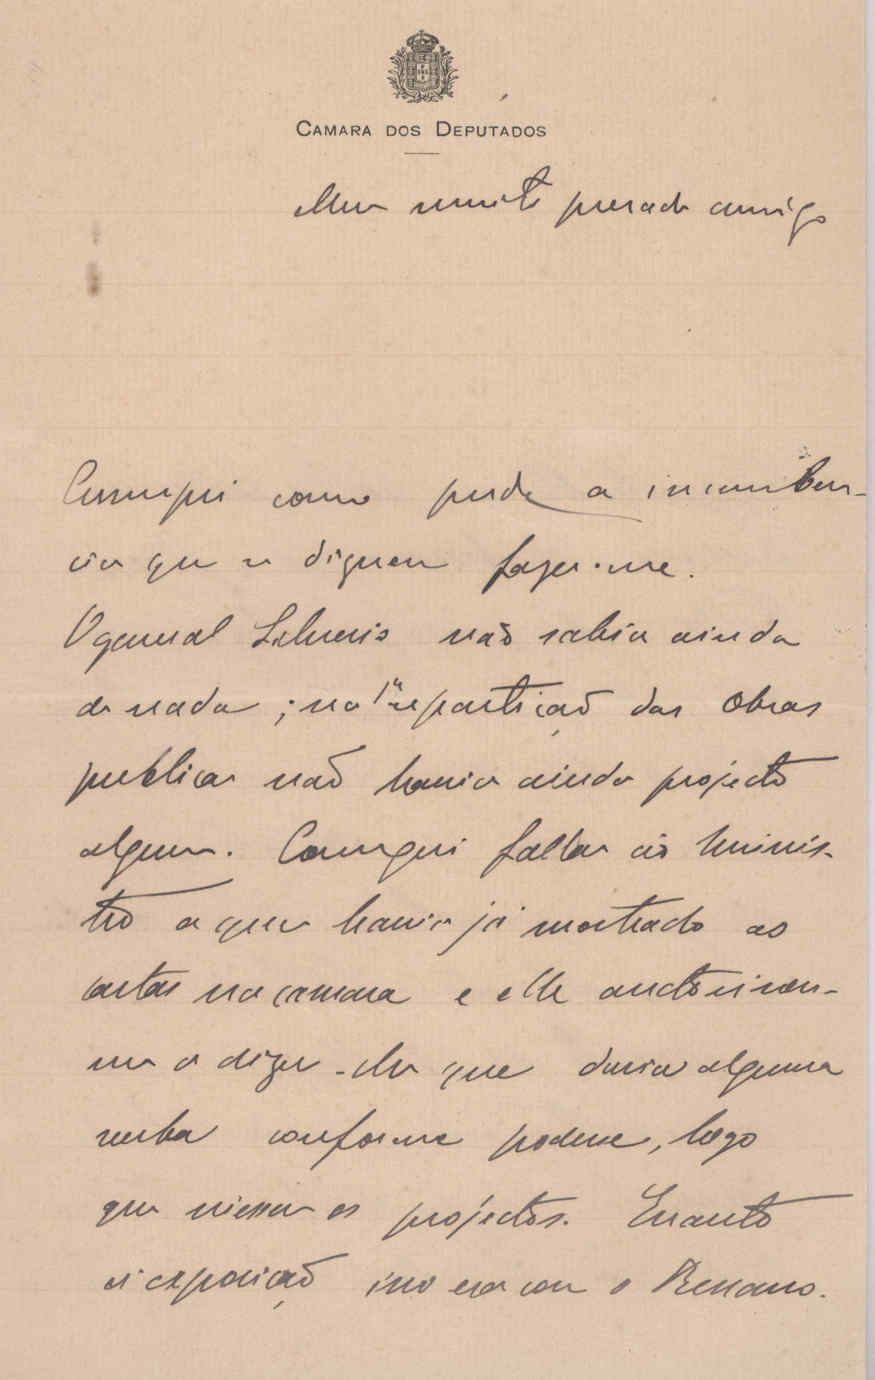 CAMARA DOS DEPUTADOS
Meu muito presado amigo
Cumpri como pude a incumben-
cia que se dignou fazer-me.
O general não sabia ainda
de nada; na 1ª repartição das Obras
publicas não havia ainda projecto
algum. Consegui fallar ao Minis-
tro a quem havia já mostrado as
cartas na camara e elle auctorisou-
me a dizer-lhe que daria alguma
verba conforme podesse, logo
que viessem os projectos. Enanto
á exposição isso era com o